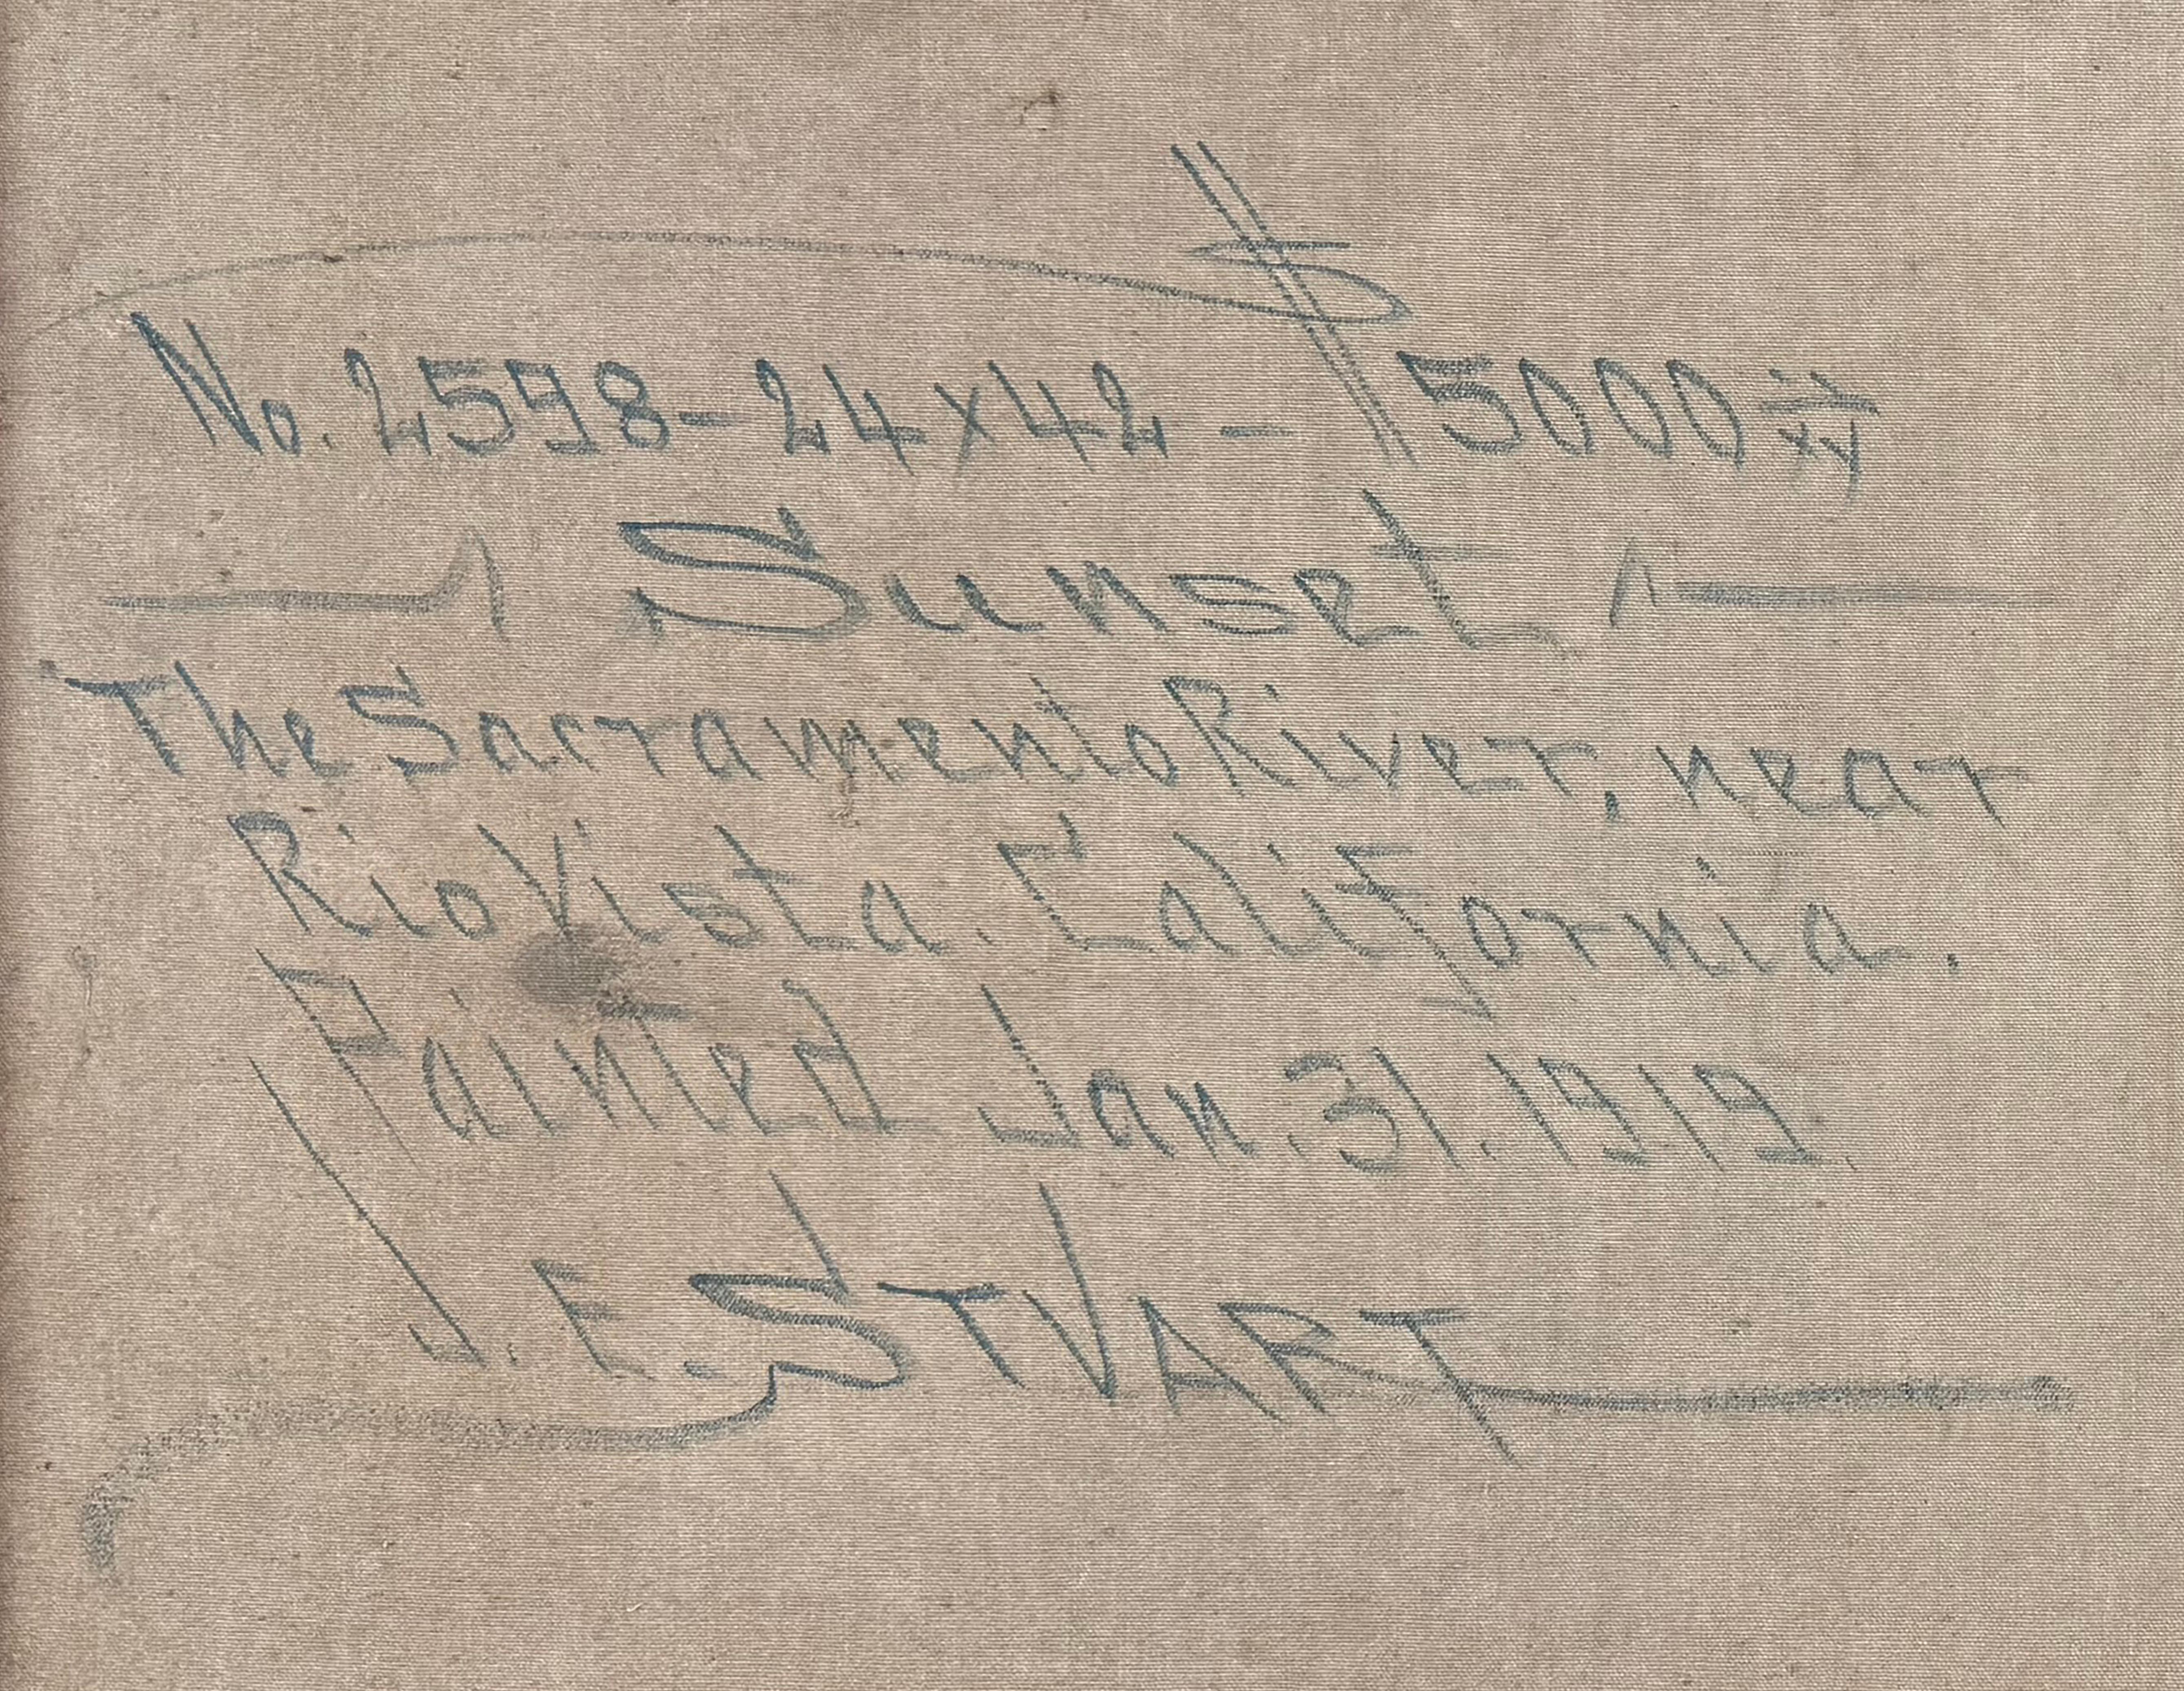 No. 2598 - 24 x 42 - $5000 xx/xx
Sunset
The Sacramento River, near
Rio Vista. California.
Painted Jan. 31. 1919.
J. E. STVART